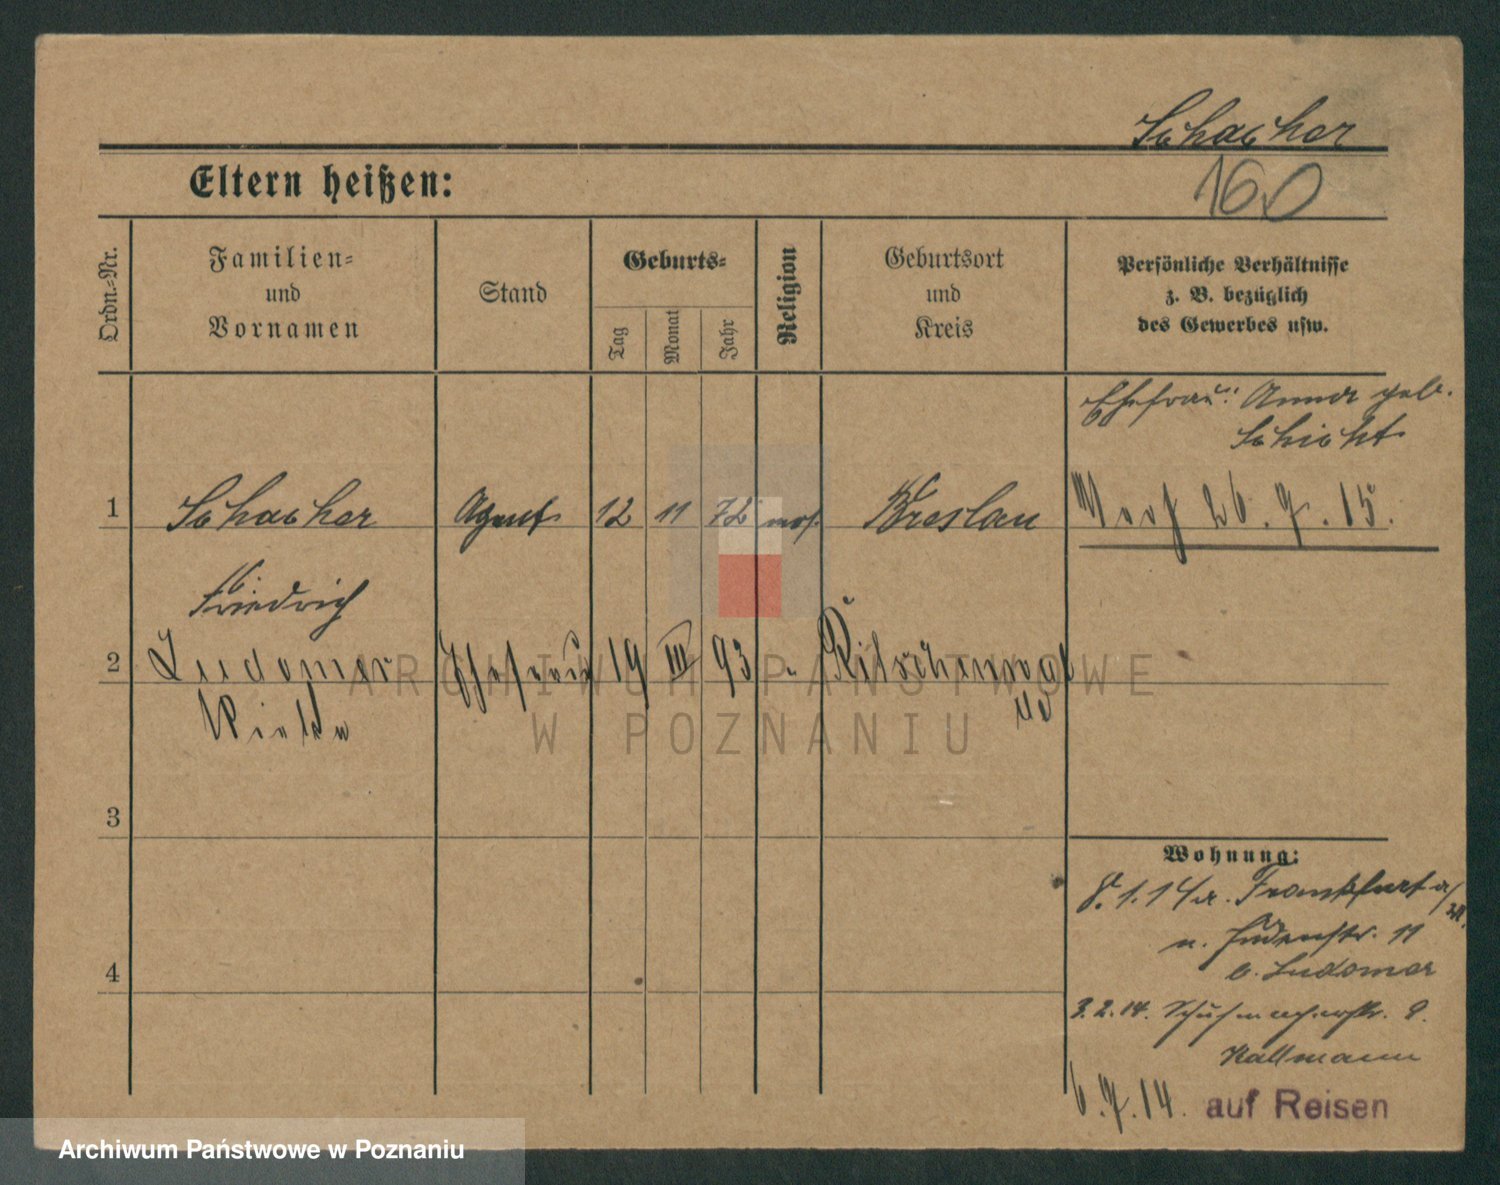 Schacher
160
Eltern heißen:
Ordn.-Nr.
Familien-
und
Vornamen
Stand
Geburts-
Tag
Monat
Jahr
Religion
Geburtsort
und
Kreis
Persönliche Verhältnisse
z. B. bezüglich
des Gewerbes usw.
Ehefrau: Anna geb.
Schicht
1 Schacher Agent 12 11 72 mos. Breslau
26.7.15.
Friedrich
2 Ludomer Ehefrau 19 III 93
3
Wohnung:
8.1.14 a. Frankfurt a/
n. Judenstr. 11
b. Ludomer
4
3.2.14. Schuhmacherstr. 8.
Kallmann
6.7.14. auf Reisen
ARCHIWUM PAŃSTWOWE
W POZNANIU
Archiwum Państwowe w Poznaniu